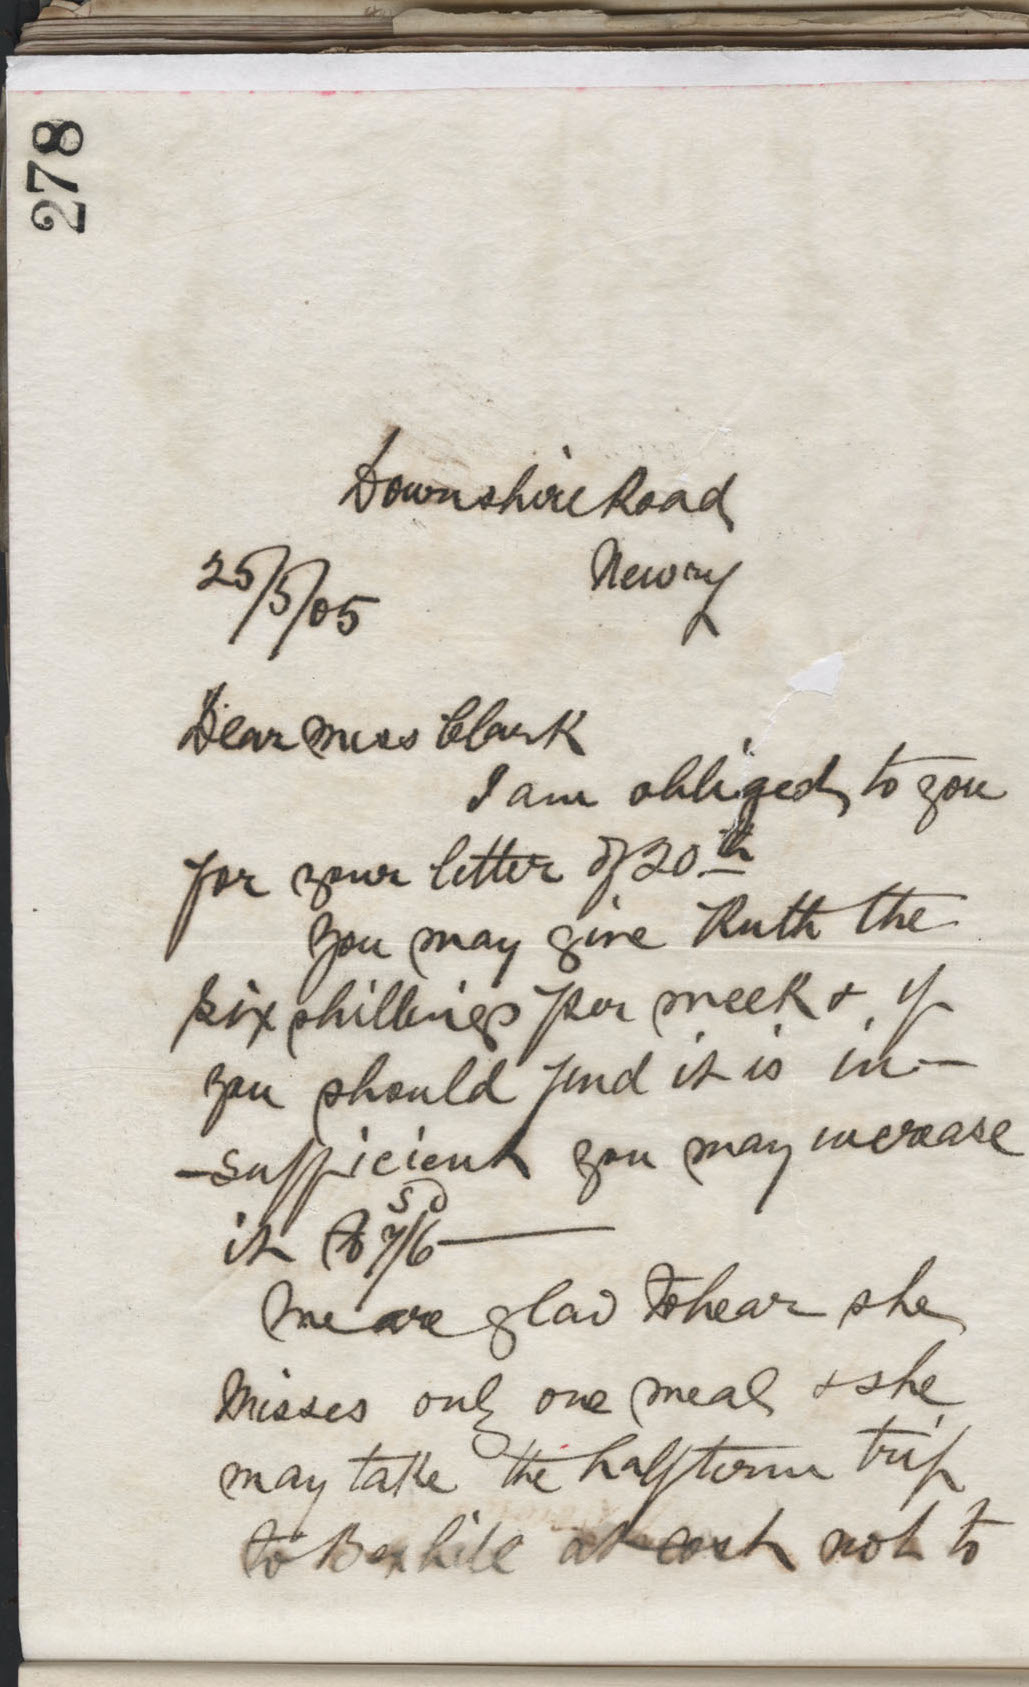 278
Downshire Road
Newry
25/5/05
Dear Miss Clark
I am obliged to you
for your letter of 20th
You may give Ruth the
six shillings per week & if
you should find it is in-
-sufficient you may increase
it to 7s/6d
We are glad to hear she
misses only one meal & she
may take the half term trip
to Bexhill at cost not to